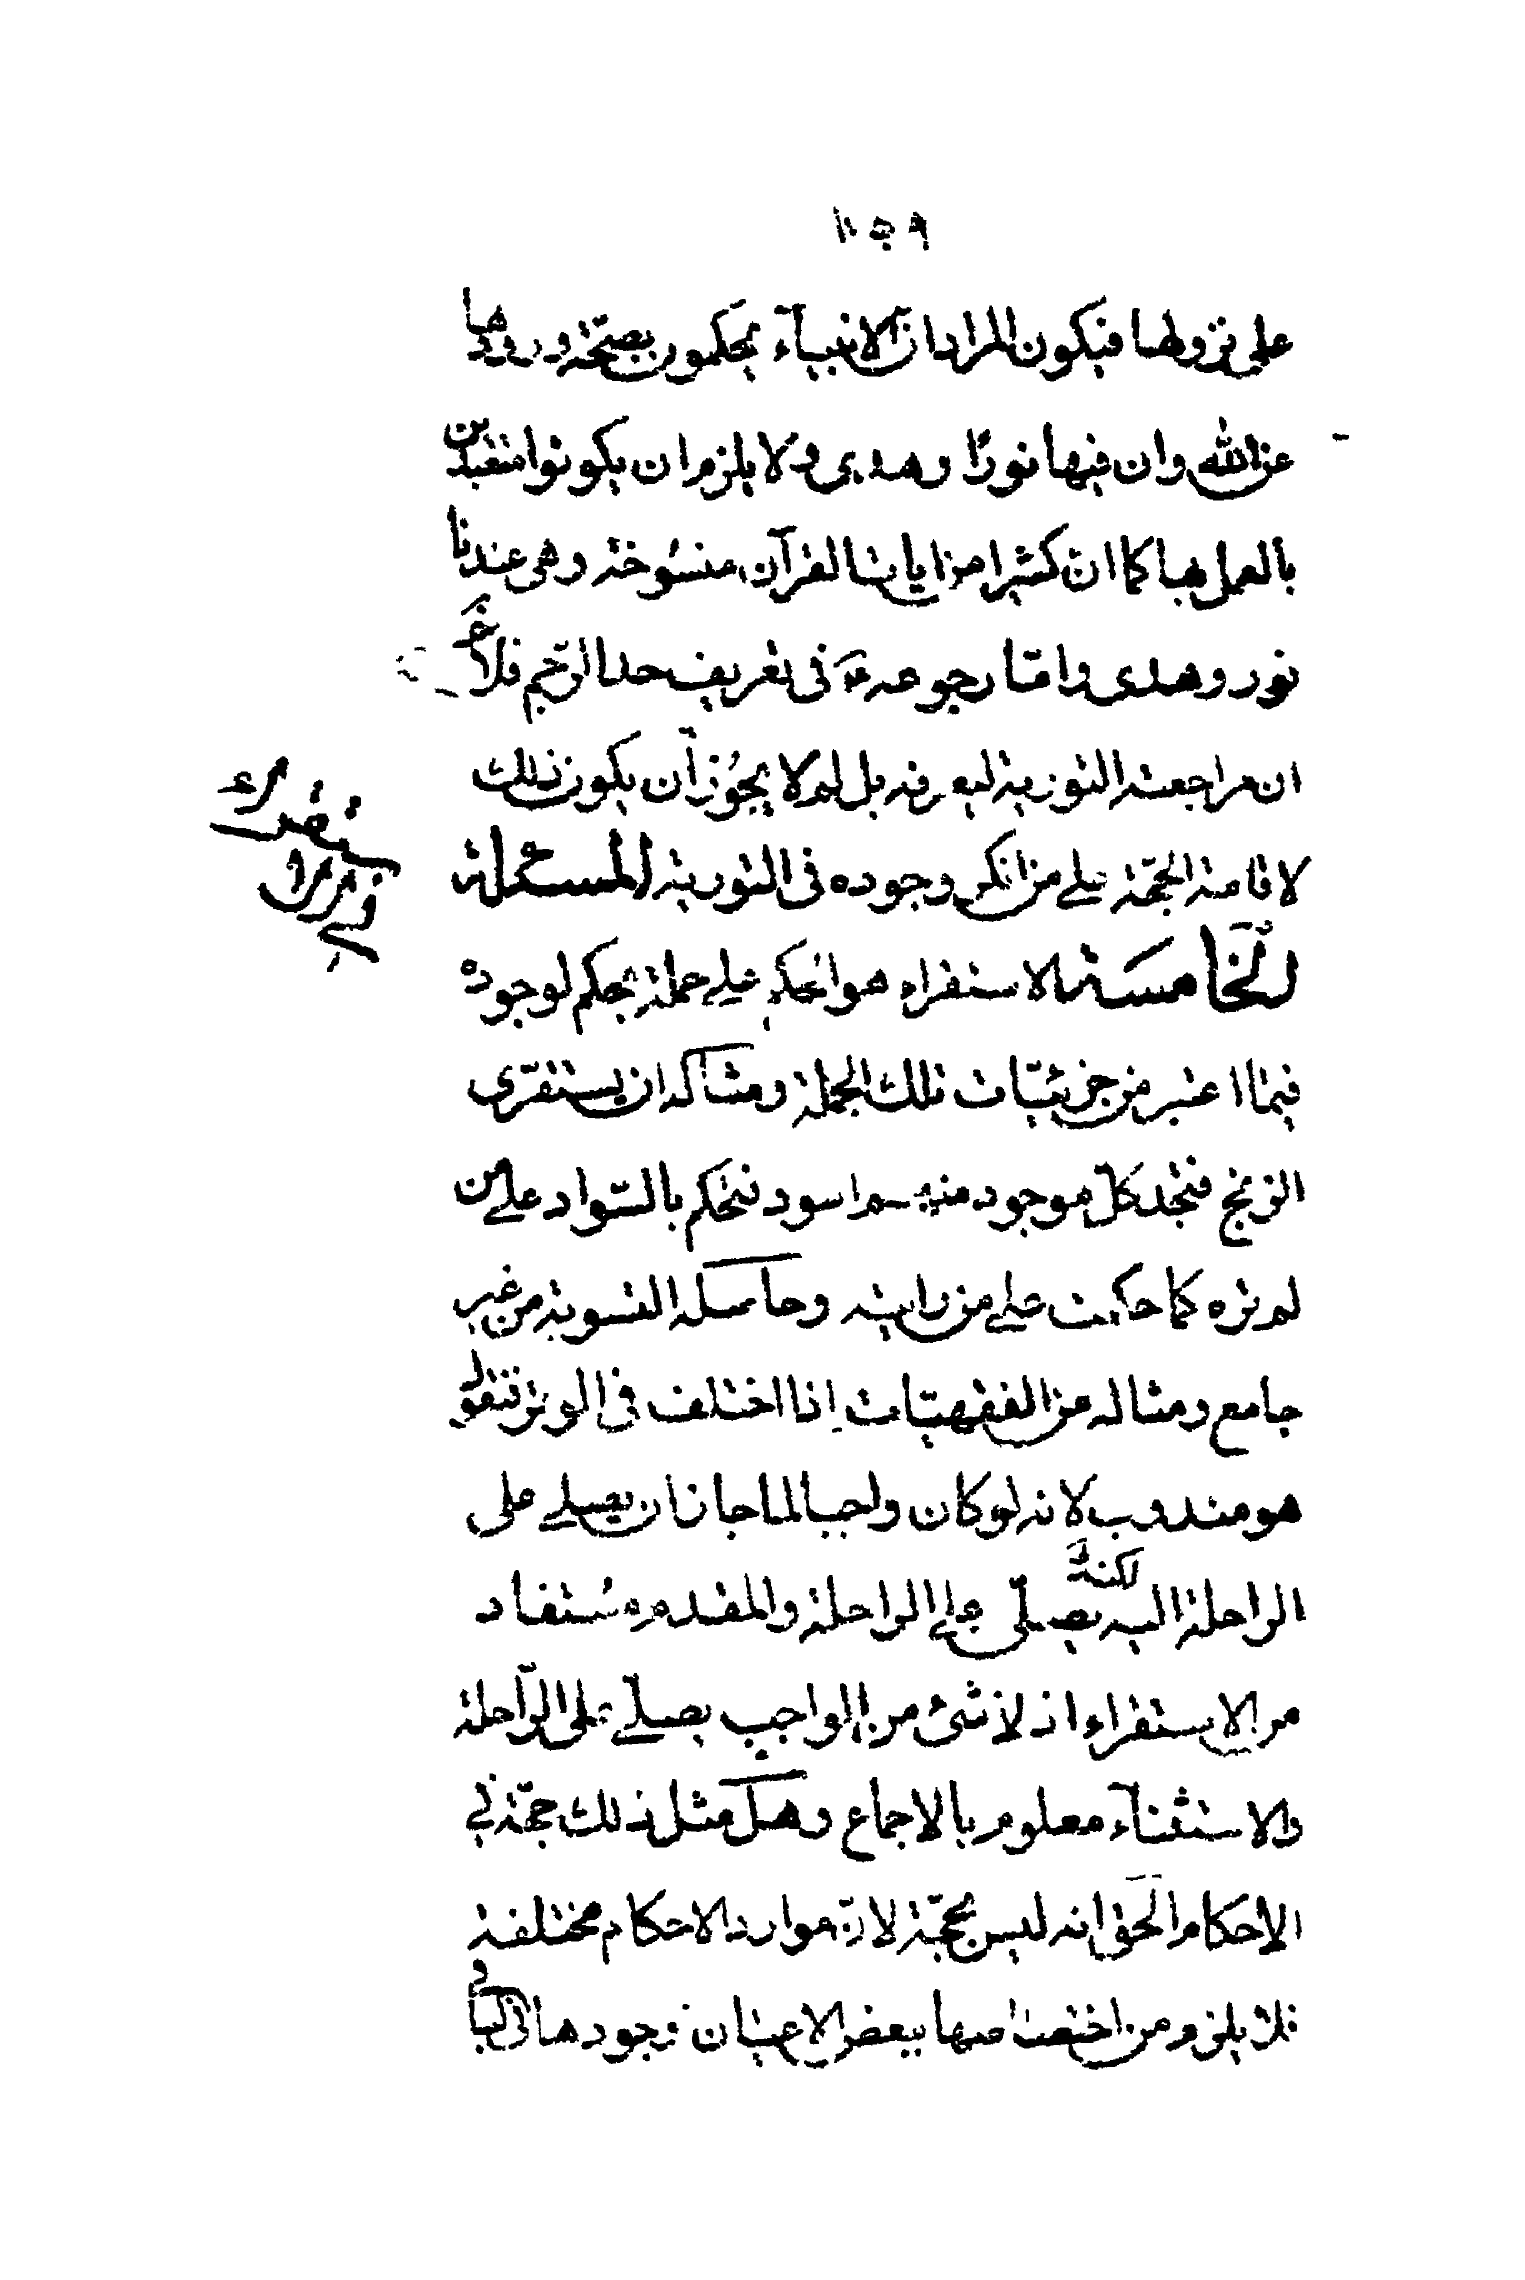 على نزولها فيكون المراد ان الانبياء يحكمون بصحة ورودها
عن الله وان فيها نورًا وهدى ولا يلزم ان يكونوا متعبدين
بالعمل بها كما ان كثيرا من ايات القرآن منسوخة وهى عندنا
نور وهدى وامّا رجوعه ع فى تعريف حد الرّجم فلا
ان مراجعته التورية ليعرفه بل لم لا يجوز أن يكون ذلك
لاقامة الحجّة على من انكر وجوده فى التورية المسئلة
الخامسة الاستقراء هو الحكم على جملة بحكم لوجوده
فيما اعتبر من جزئيّات تلك الجملة ومثاله ان يستقرى
الزنج فنجد كلّ موجود منهم اسود فنحكم بالسّواد على من
لم نره كما حكمت على من رايته وحاصله التسوية من غير
جامع ومثاله من الفقهيّات اذا اختلف فى الوتر فنقول
هو مندوب لانه لو كان واجبا لما جاز ان يصلى على
الراحلة لكنه يصلّى على الراحلة والمقدمة مستفاد
من الاستقراء اذ لا شئ من الواجب يصلّى على الرّاحلة
والاستثناء معلوم بالاجماع وهل مثل ذلك حجّة فى
الاحكام الحق انه ليس بحجّة لانّ موارد الاحكام مختلفة
فلا يلزم من اختصاصها ببعض الاعيان وجودها فى الباقى